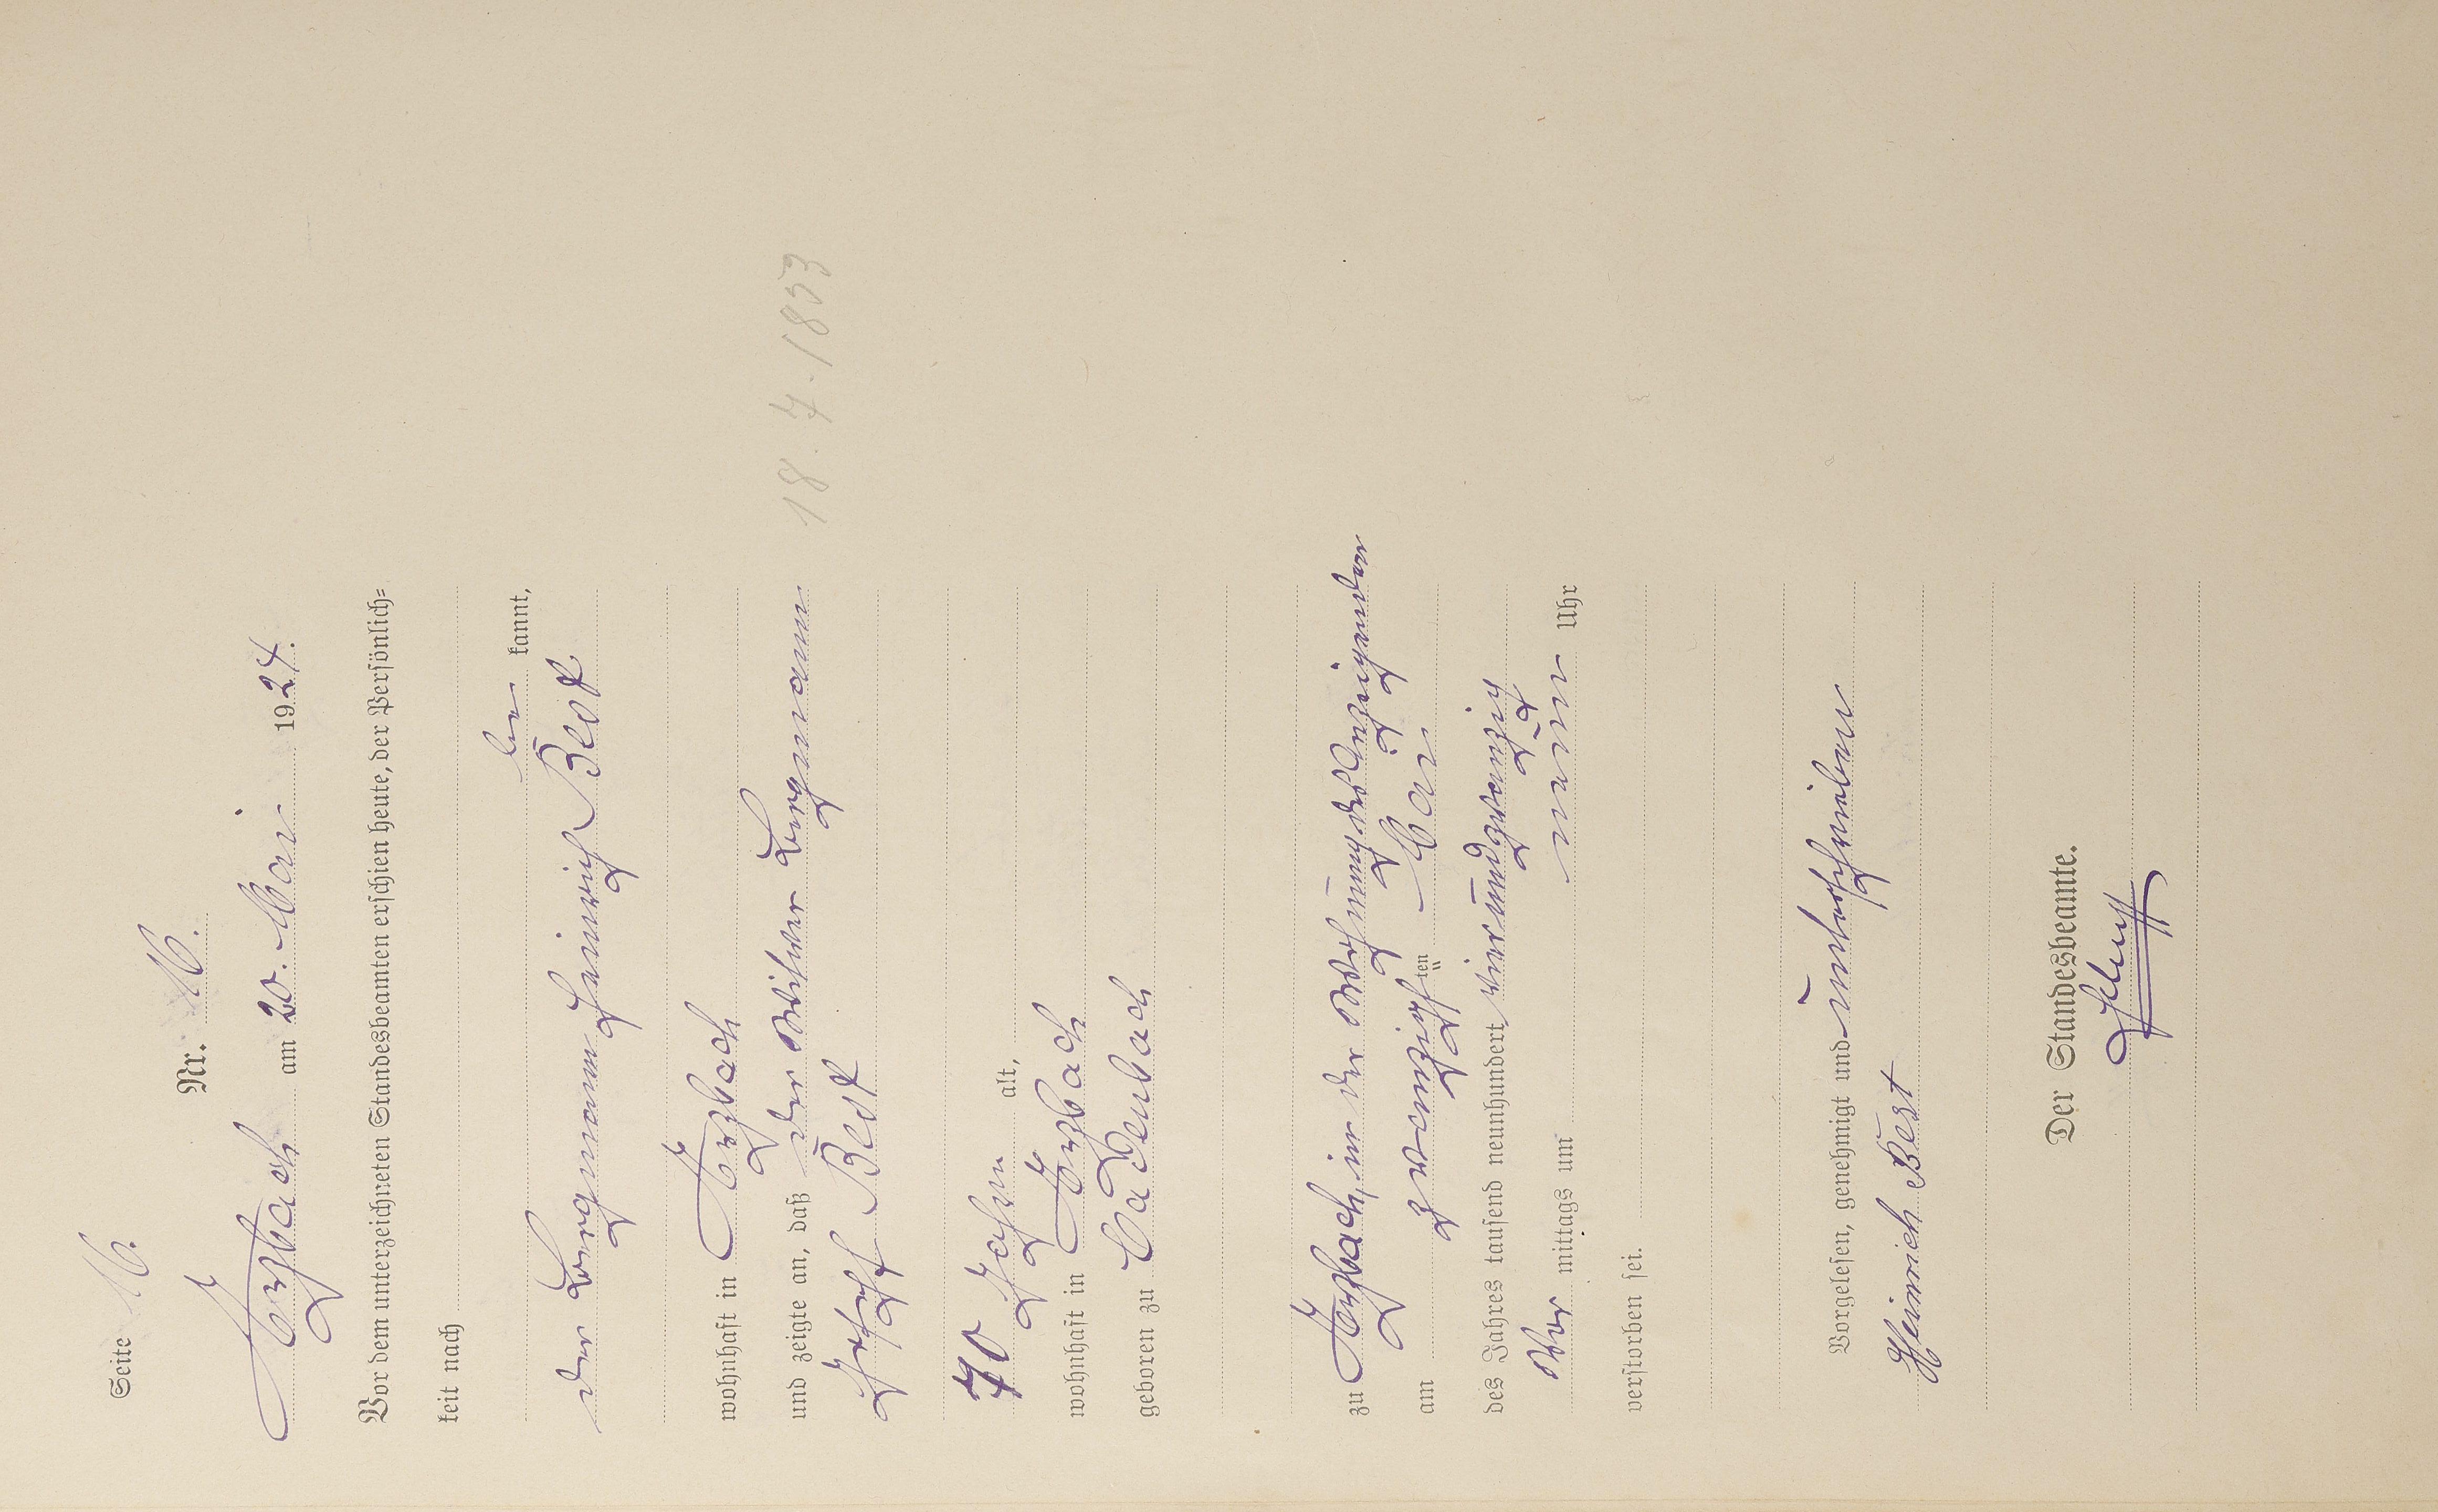 Seite 16.
Nr. 16.
Arzbach am 20. Mai 1924.
Vor dem unterzeichneten Standesbeamten erschien heute, der Persönlich=
keit nach
be kannt,
der Bergmann Heinrich Best
wohnhaft in Arzbach
und zeigte an, daß der Witwer Bergmann 18.7.1853
Joseph Best
70 Jahre alt,
wohnhaft in Arzbach
geboren zu Cadenbach
zu Arzbach, in der Wohnung des Anzeigenden
am zwanzigsten Mai
des Jahres tausend neunhundert vierundzwanzig
Vor mittags um neun Uhr
verstorben sei.
Vorgelesen, genehmigt und unterschrieben
Heinrich Best
Der Standesbeamte.